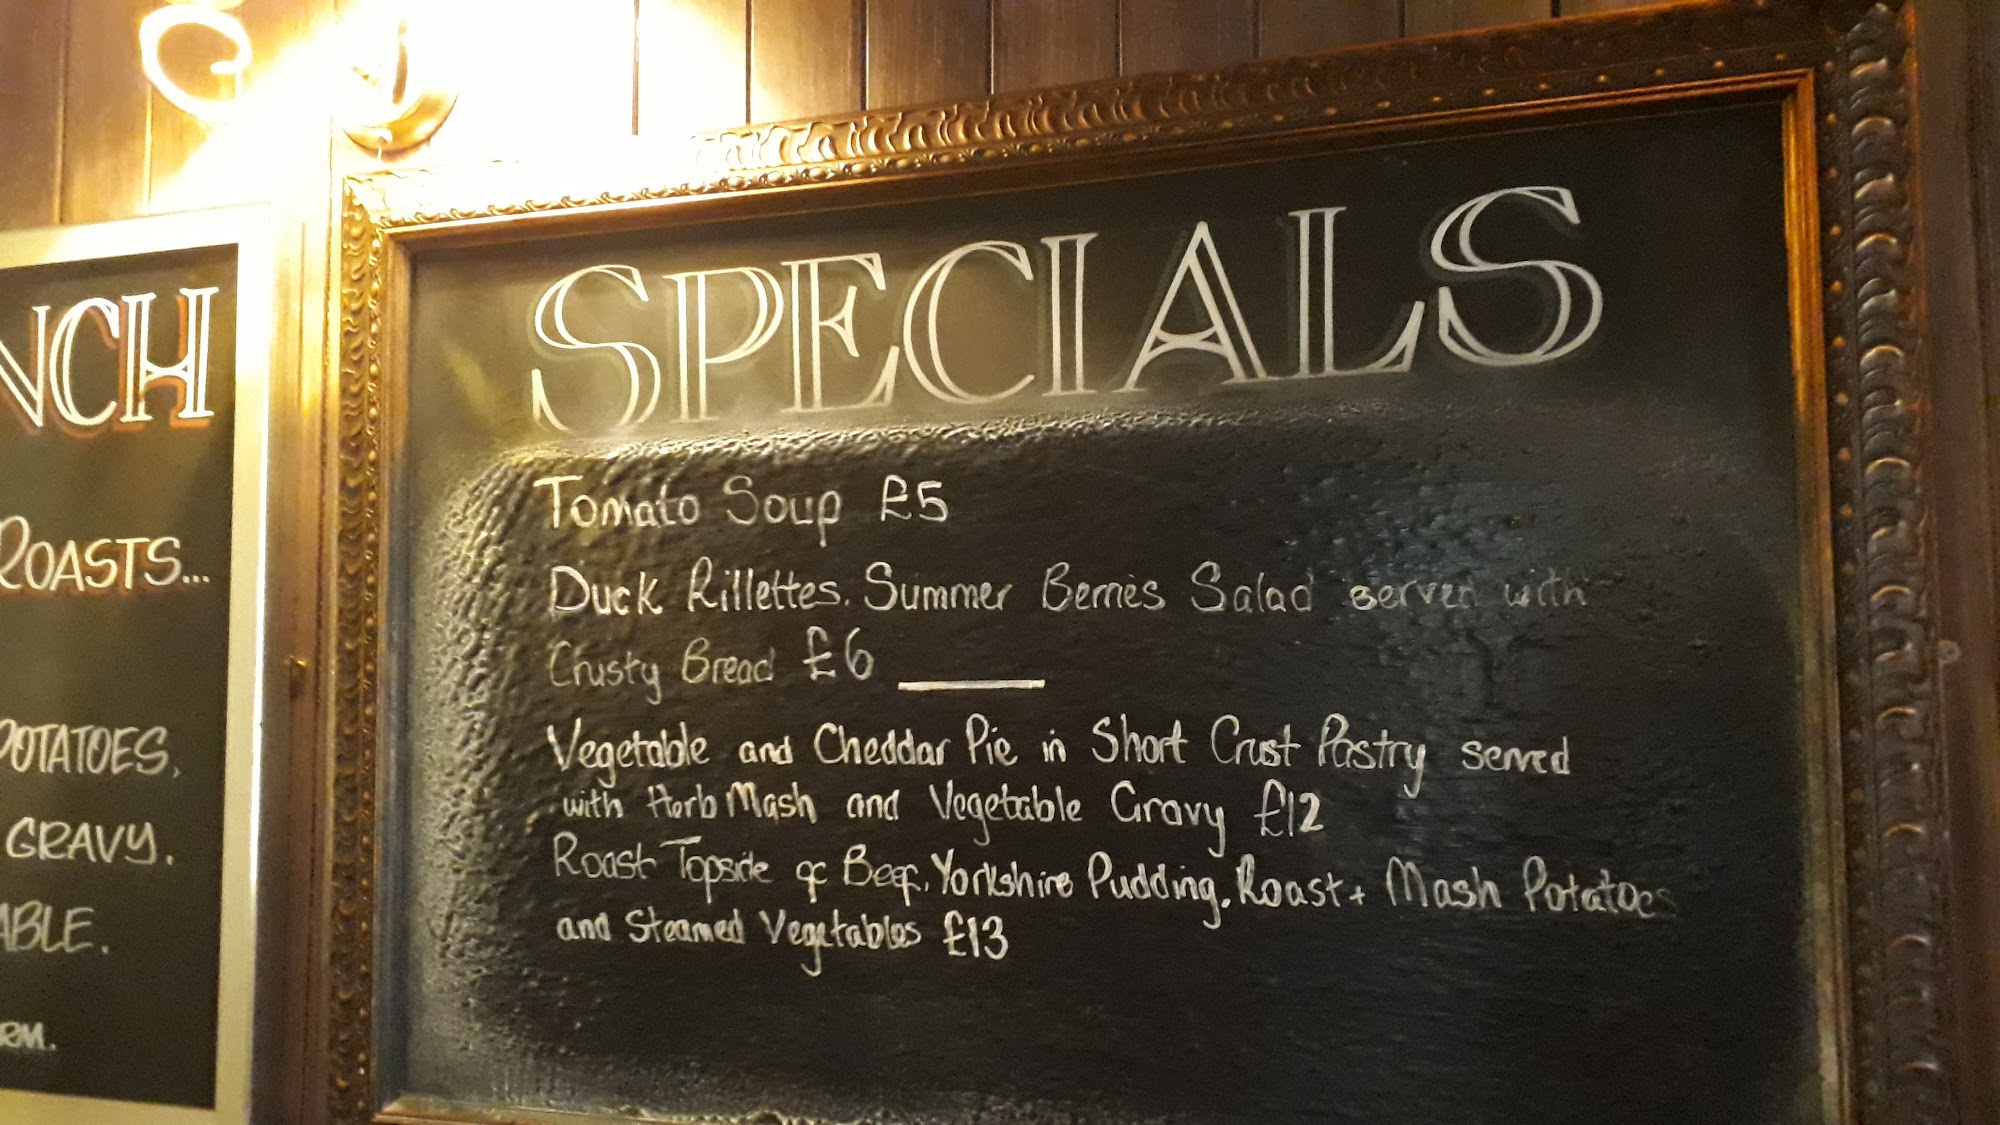 NCH
ROASTS...
POTATOES,
GRAVY.
ABLE.
RM.
SPECIALS
Tomato Soup £5
Duck Rillettes. Summer Berries Salad served with
Crusty Bread £6
Vegetable and Cheddar Pie in Short Crust Pastry served
with Herb Mash and Vegetable Gravy £12
Roast Topside of Beef, Yorkshire Pudding, Roast + Mash Potatoes
and Steamed Vegetables £13